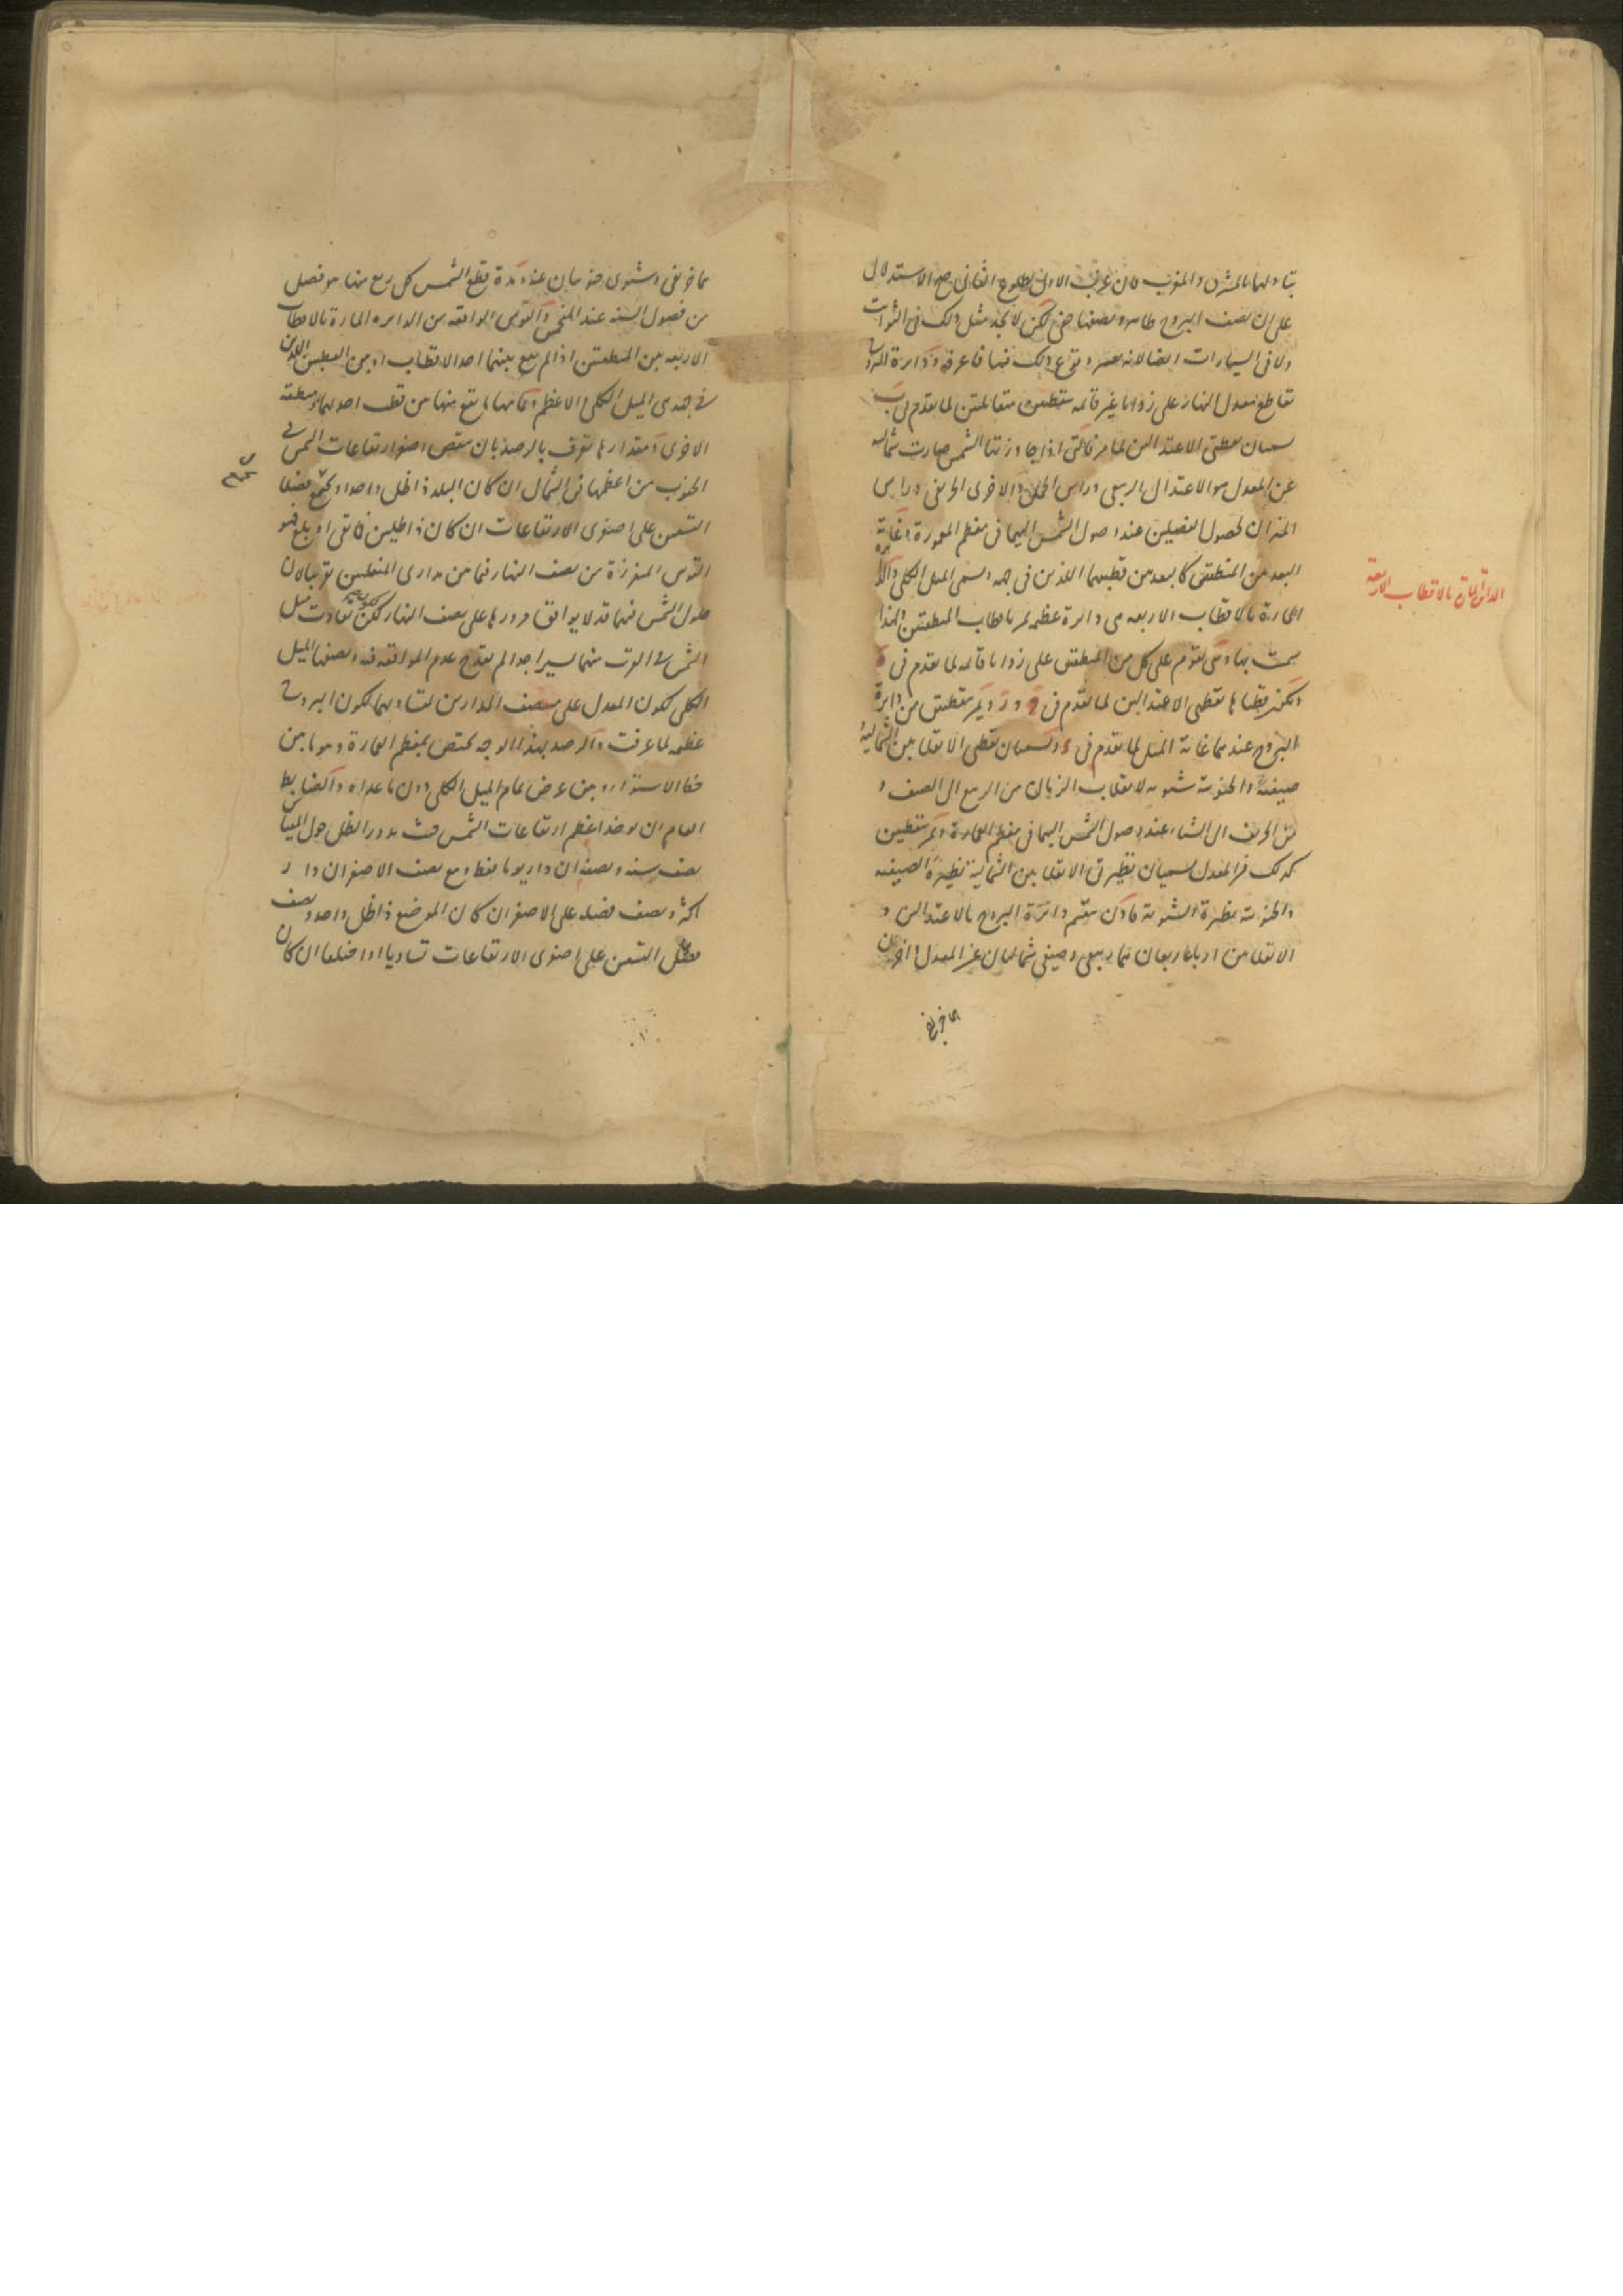 على ان نصف البروج ظاهر ونصفها خفى لكن لا نجد مثل ذلك فى الثوابت
ولا فى السيارات ايضا لانه وقوع ذلك فيها فاعرفه ودائرة البروج
تقاطع معدل النهار على زوايا غير قائمة متقابلتين لما تقدم فى ب
نقطتى الاعتدالين لما مر فالتى اذا جاوزتها الشمس صارت شمالية
عن المعدل هو الاعتدال الربيعى وراس الحمل والاخرى الخريفى وراس
الميزان لحصول الفصلين عند وصول الشمس اليهما فى معظم المعمورة وغاية
البعد بين المنطقتين كالبعد بين قطبيهما اللذين فى جهة ويسمى الميل الكلى والدائرة
المارة بالاقطاب الاربعة هى دائرة عظيمة تمر باقطاب المنطقتين ولهذا
سميت بها وهى تقوم على كل من المنطقتين على زوايا قائمة لما تقدم فى
ويكون قطباها نقطتى الاعتدالين لما تقدم فى و ويمر بنقطتين من دائرة
البروج عندهما غاية الميل لما تقدم فى وتسميان نقطتى الانقلابين الشمالية
صيفية والجنوبية شتوية لانقلاب الزمان من الربيع الى الصيف و
من الخريف الى الشتاء عند وصول الشمس اليهما فى معظم العمارة ويمر بنقطتين
كذلك من المعدل تسميان نظيرتى الانقلابين الشمالية نظيرة الصيفية
والجنوبية نظيرة الشتوية فاذن تنقسم دائرة البروج بالاعتدالين و
الانقلابين ارباعا ربعان منها ربيعى وصيفى شماليان عن المعدل واخران
هما خريفى
الدائرة المارة بالاقطاب الاربعة
هما خريفى وشتوى جنوبيان عنه ومدة قطع الشمس كل ربع منها هو فصل
من فصول السنة عند المنجمين والقوس الواقعة من الدائرة المارة بالاقطاب
الاربعة بين المنطقتين اذا لم يقع بينهما احد الاقطاب او بين القطبين اللذين
فى جهة هى الميل الكلى الاعظم وتمامها ما يقع منها بين قطب احدهما ومنطقة
الاخرى ومقدارها تعرف بالرصد بان ينقص اصغر ارتفاعات الشمس فى
الجنوب من اعظمها فى الشمال ان كان البلد ذا ظل واحد او يجمع فضلا
التسعين على اصغرى الارتفاعات ان كان ذا ظلين فما بقى او بلغ فهو
القوس المفرزة من نصف النهار فيما بين مدارى المنقلبين تقريبا لان
حلول الشمس فيهما قد لا يوافق مرورها على نصف النهار لكن تفاوت ميل
الشمس فى القرب منهما يسير جدا لم يقدح عدم الموافقة فيه ونصفها الميل
الكلى لكون المعدل على منتصف المدارين لتساويهما لكون البروج
عظيمة لما عرفت والرصد بهذا الوجه يختص بمعظم العمارة وهو ما بين
خط الاستواء وبين عرض تمام الميل الكلى دون ما عداه والضابط
العام ان يوخذ اعظم ارتفاعات الشمس حيث يدور الظل حول المقياس
نصف سنة ونصفه ان دار يوما فقط ومع نصف الاصغر ان دار
اكثر ونصف فضله على الاصغر ان كان الموضع ذا ظل واحد ونصف
فضل التسعين على اصغرى الارتفاعات تساويا او اختلفا ان كان